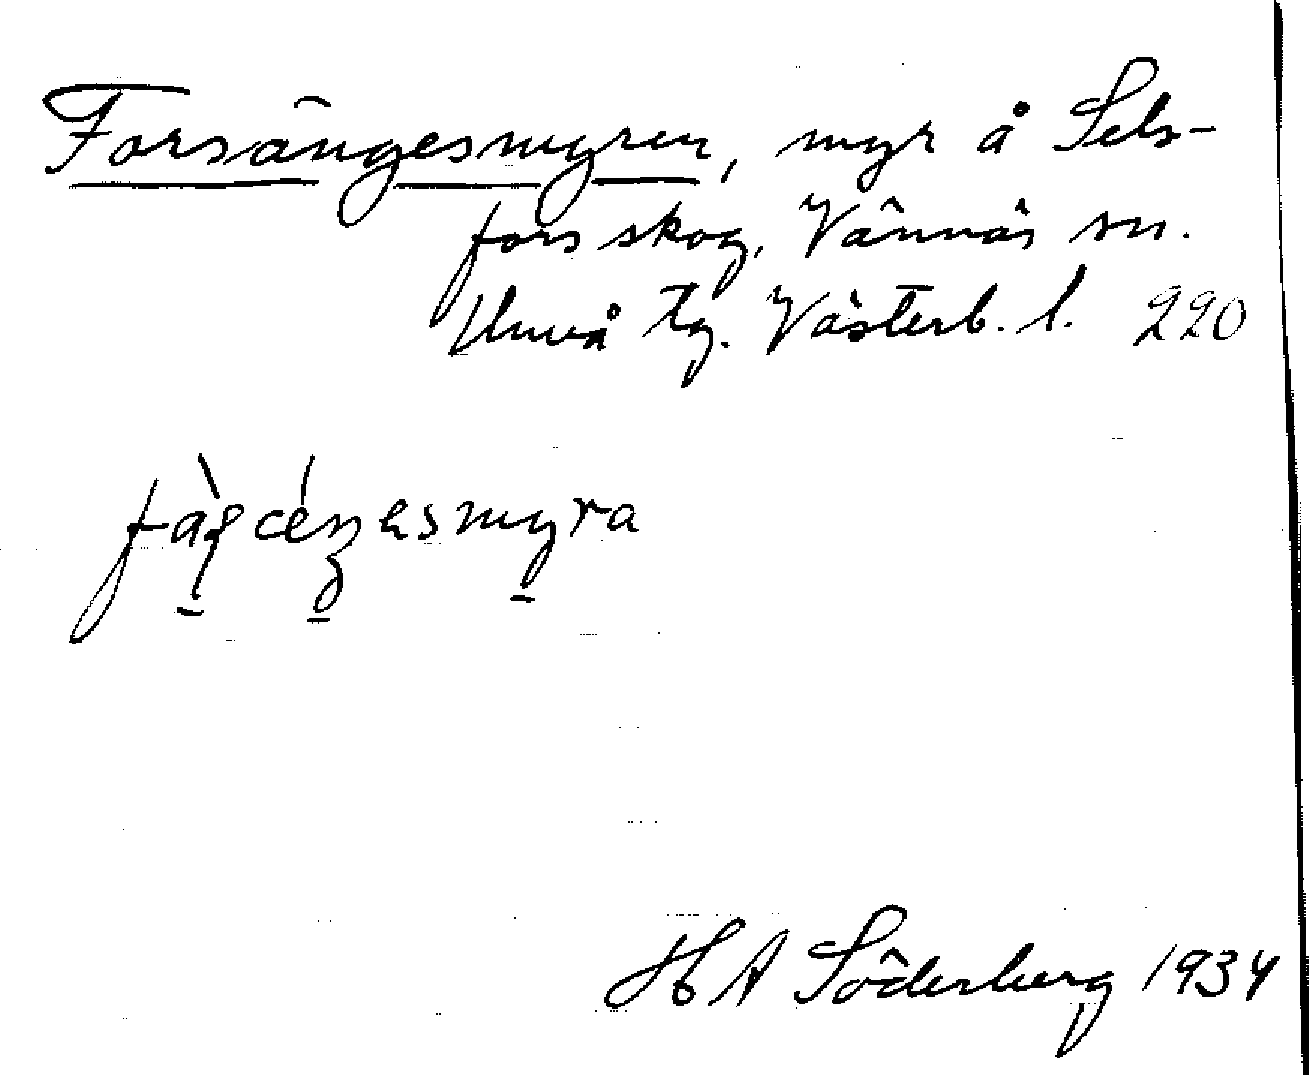 Forsängesmyren, myr å Sels-
fors skog, Vännäs sn.
Umeå tg. Västerb. l. 220
H A Söderberg 1934